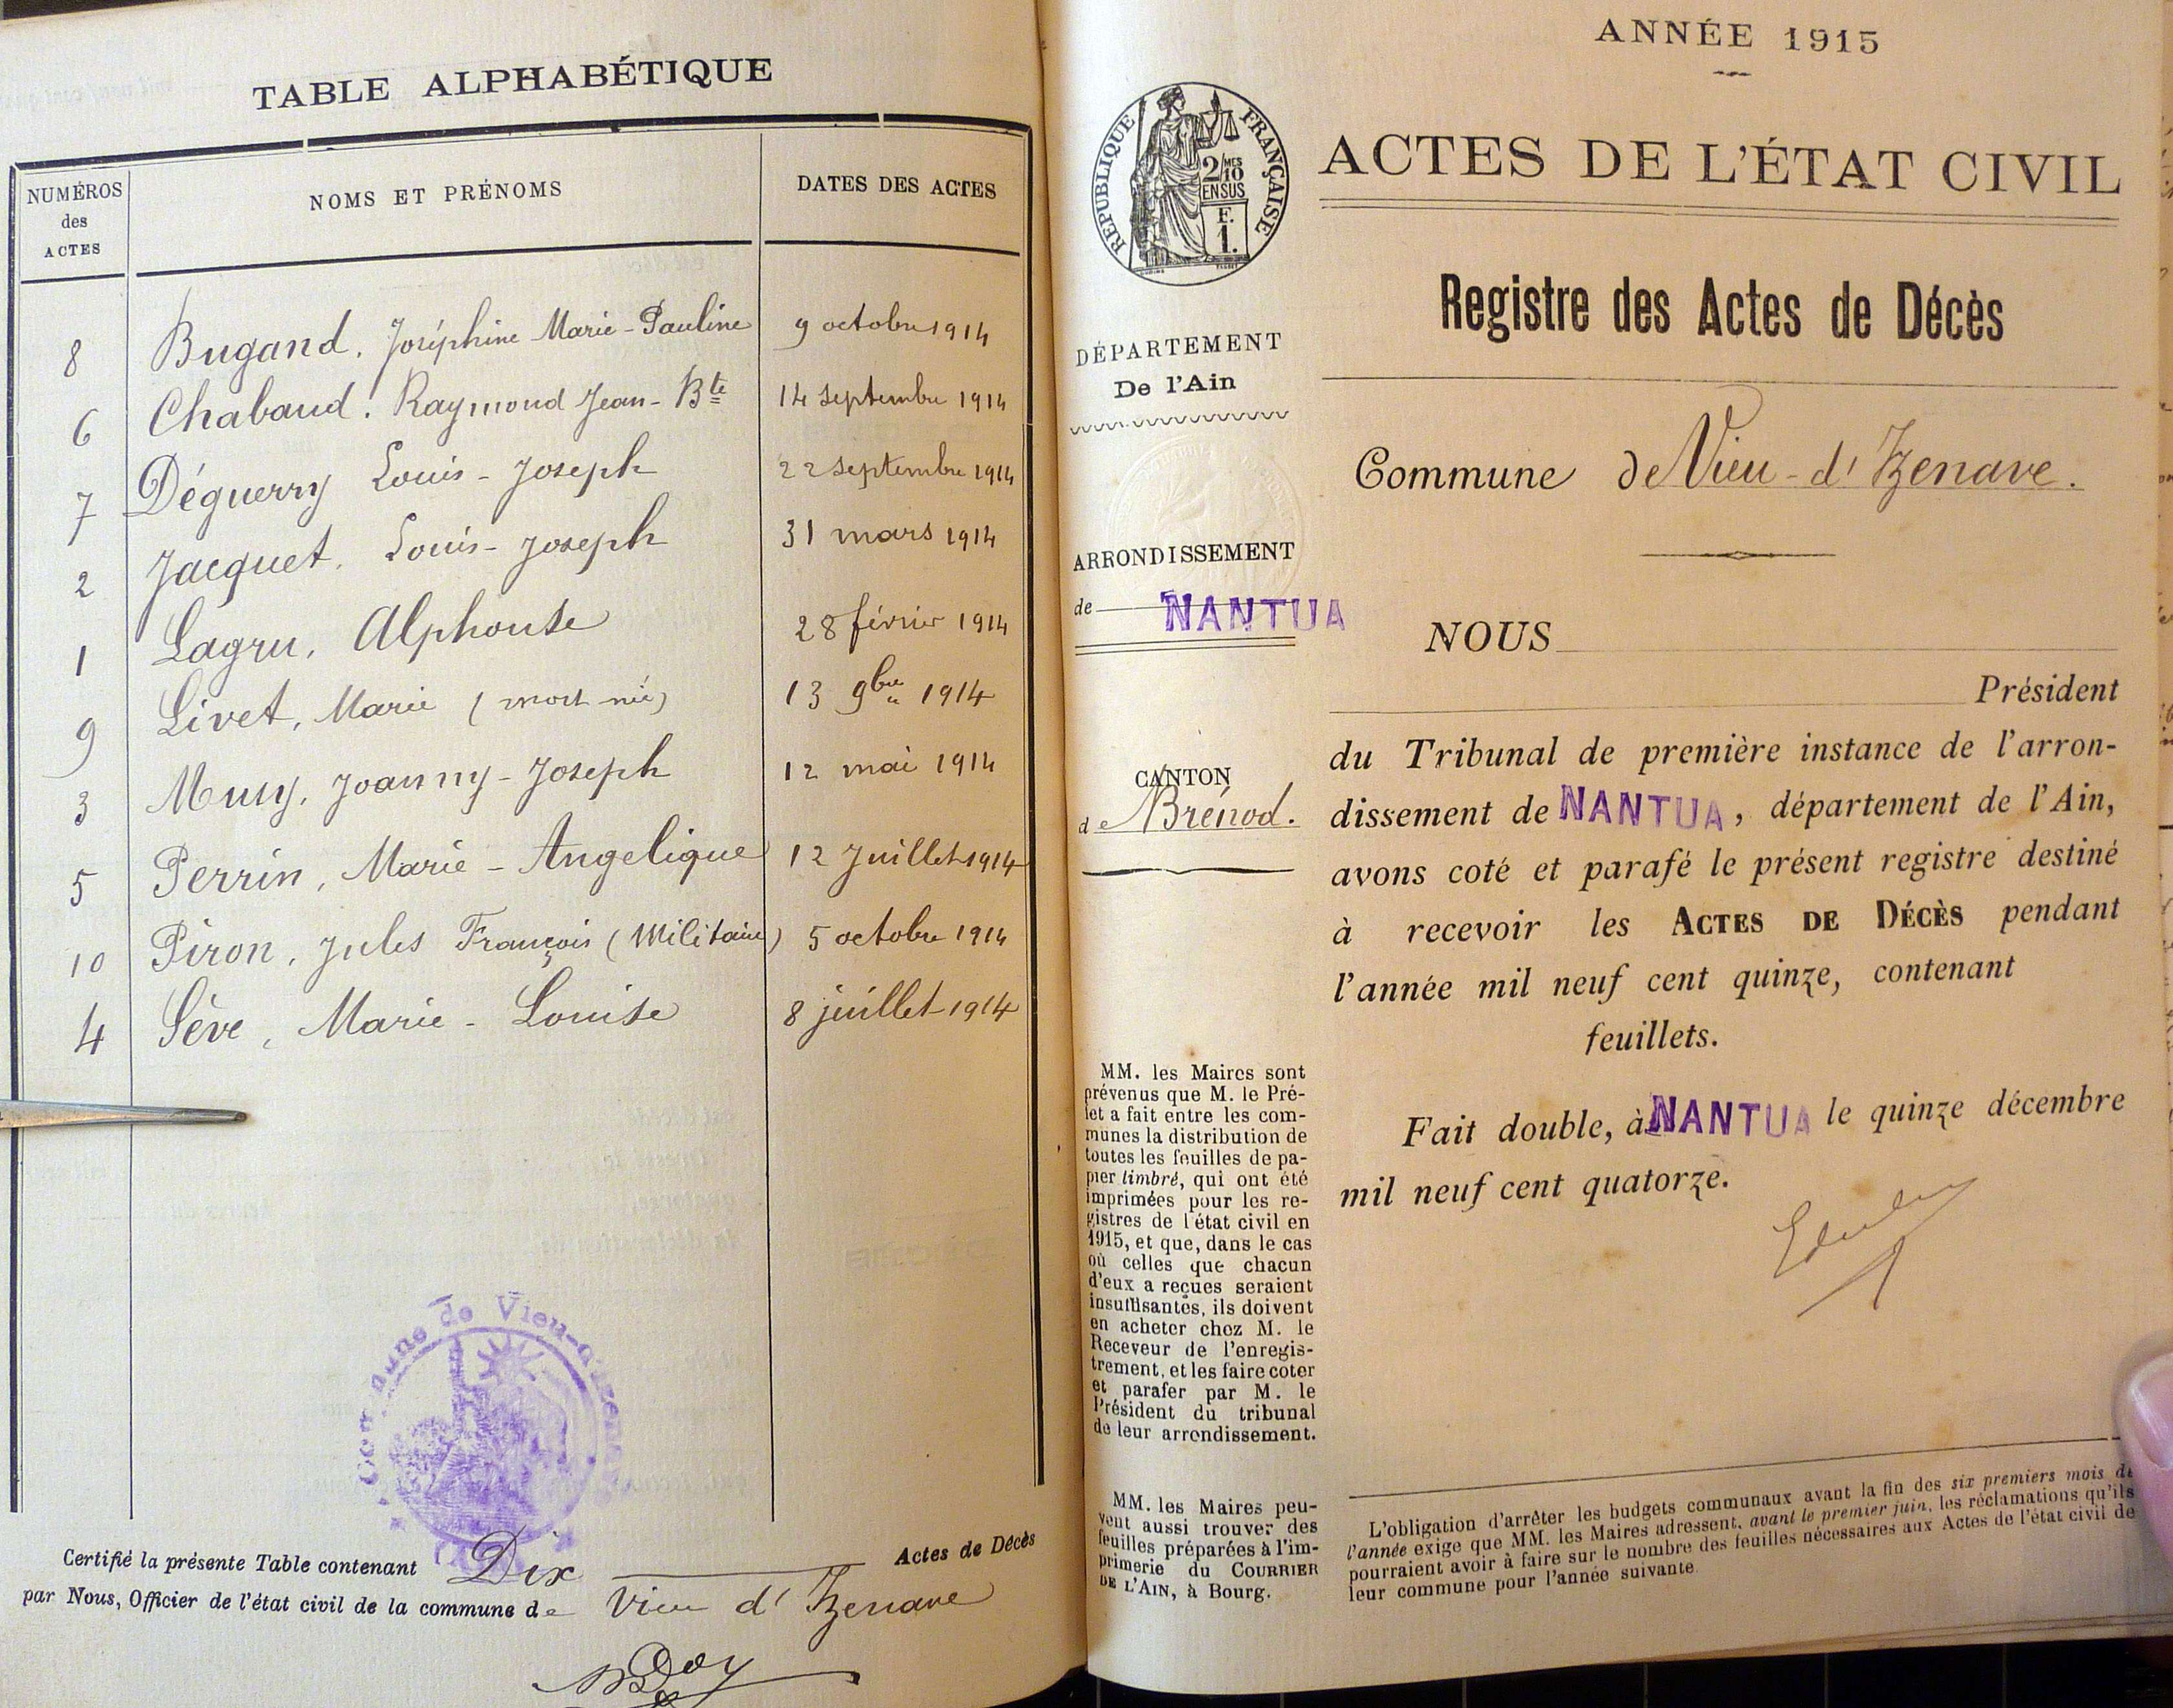 TABLE ALPHABÉTIQUE
NUMÉROS des ACTES
NOMS ET PRÉNOMS
DATES DES ACTES
8 Bugand, Joséphine Marie-Pauline 9 octobre 1914
6 Chabaud, Raymond Jean-Bte 14 septembre 1914
7 Déguerry Louis-Joseph 22 septembre 1914
2 Jacquet, Louis-Joseph 31 mars 1914
1 Lagru, Alphonse 28 février 1914
9 Livet, Marie (mort né) 13 9bre 1914
3 Musy, Joanny-Joseph 12 mai 1914
5 Perrin, Marie-Angelique 12 Juillet 1914
10 Piron, Jules François (Militaire) 5 octobre 1914
4 Sève, Marie-Louise 8 juillet 1914
Commune de Vieu-d'Izenave
Certifié la présente Table contenant Dix Actes de Décès
par Nous, Officier de l'état civil de la commune de Vieu d'Izenave
ANNÉE 1915
RÉPUBLIQUE FRANÇAISE
2/10 MES
EN SUS
F.
1.
ACTES DE L'ÉTAT CIVIL
Registre des Actes de Décès
DÉPARTEMENT
De l'Ain
Commune de Vieu-d'Izenave.
ARRONDISSEMENT
de NANTUA
CANTON
de Brénod.
MM. les Maires sont
prévenus que M. le Pré-
fet a fait entre les com-
munes la distribution de
toutes les feuilles de pa-
pier timbré, qui ont été
imprimées pour les re-
gistres de l'état civil en
1915, et que, dans le cas
où celles que chacun
d'eux a reçues seraient
insuffisantes, ils doivent
en acheter chez M. le
Receveur de l'enregis-
trement, et les faire coter
et parafer par M. le
Président du tribunal
de leur arrondissement.
MM. les Maires peu-
vent aussi trouver des
feuilles préparées à l'im-
primerie du COURRIER
DE L'AIN, à Bourg.
NOUS
Président
du Tribunal de première instance de l'arron-
dissement de NANTUA, département de l'Ain,
avons coté et parafé le présent registre destiné
à recevoir les ACTES DE DÉCÈS pendant
l'année mil neuf cent quinze, contenant
feuillets.
Fait double, à NANTUA le quinze décembre
mil neuf cent quatorze.
L'obligation d'arrêter les budgets communaux avant la fin des six premiers mois de
l'année exige que MM. les Maires adressent, avant le premier juin, les réclamations qu'ils
pourraient avoir à faire sur le nombre des feuilles nécessaires aux Actes de l'état civil de
leur commune pour l'année suivante.